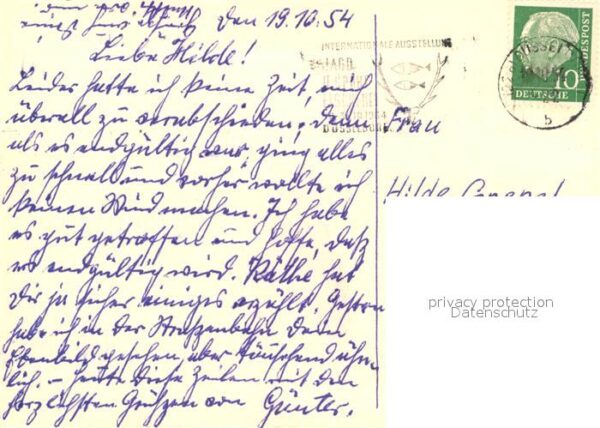 den 19.10.54
Liebe Hilde!
Leider hatte ich keine Zeit, mich
überall zu verabschieden; denn
als es endgültig war, ging alles
zu schnell und vorher wollte ich
keinen Wind machen. Ich habe
es gut getroffen und hoffe, daß
es endgültig wird. Käthe hat
Dir ja sicher einiges erzählt. Gestern
habe ich in der Straszenbahn Dein
Ebenbild gesehen, aber täuschend ähn-
lich. – Heute diese Zeilen mit den
herzlichsten Grüszen von Günter.
INTERNATIONALE AUSSTELLUNG
JAGD
1954
DÜSSELDORF
DÜSSELD
b
DEUTSCHE BUNDESPOST
10
Frau
Hilde
privacy protection
Datenschutz